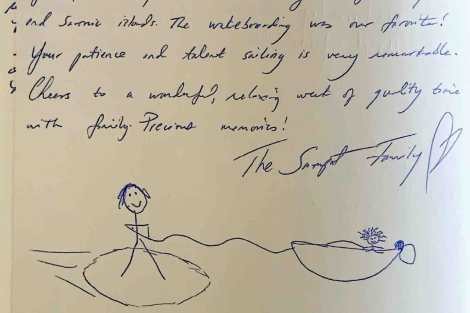 and Saronic islands. The wakeboarding was our favorite!
Your patience and talent sailing is very remarkable.
Cheers to a wonderful, relaxing week of quality time
with family. Precious memories!
The Family